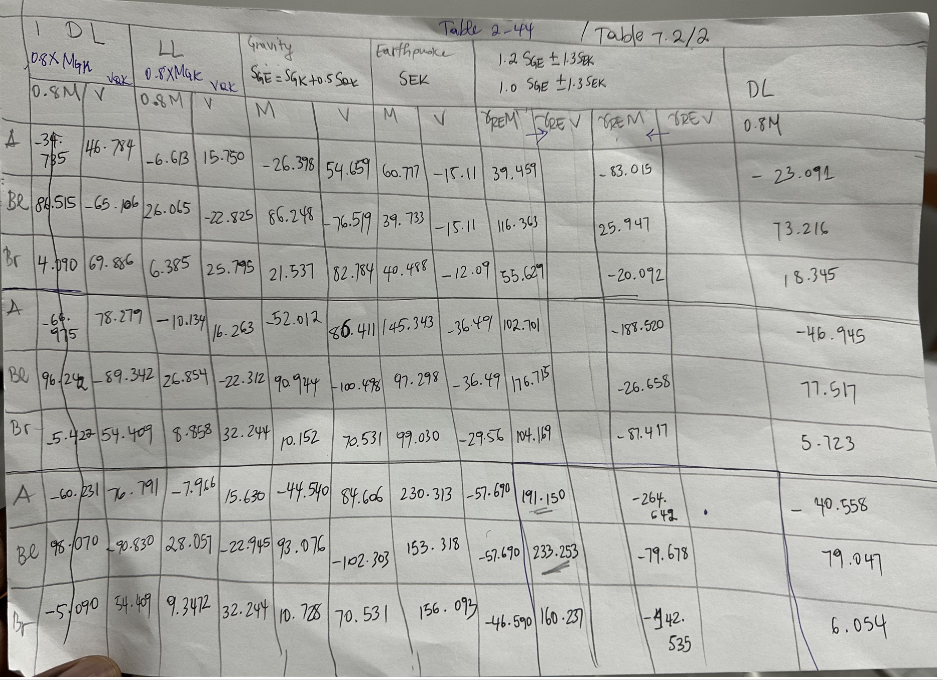 Table 2-44 / Table 7.2/2
1 DL LL Gravity Earthquake 1.2 SGE ± 1.3SEK
0.8XMGK VGK 0.8XMGK VGK SGE = SGK+0.5SQK SEK 1.0 SGE ±1.3SEK DL
0.8M V 0.8M V M V M V γREM γREV γREM γREV 0.8M
A -34.735 46.784 -6.613 15.750 -26.398 54.659 60.777 -15.11 39.459 -83.015 -23.091
Be 86.515 -65.106 26.065 -22.825 86.248 -76.519 39.733 -15.11 116.363 25.947 73.216
Br 4.090 69.886 6.385 25.795 21.537 82.784 40.488 -12.09 55.629 -20.092 18.345
A -66.975 78.279 -10.134 16.263 -52.012 86.411 145.343 -36.49 102.701 -188.520 -46.945
Be 96.242 -89.342 26.854 -22.312 90.944 -100.498 97.298 -36.49 176.715 -26.658 77.517
Br -5.427 54.409 8.858 32.244 10.152 70.531 99.030 -29.56 104.169 -87.417 5.723
A -60.231 76.791 -7.966 15.630 -44.540 84.606 230.313 -57.690 191.150 -264.642 - 40.558
Be 98.070 -90.830 28.057 -22.945 93.076 -102.303 153.318 -57.690 233.253 -79.678 79.047
Br -5.090 54.409 9.3472 32.244 10.728 70.531 156.093 -46.590 160.237 -142.535 6.054